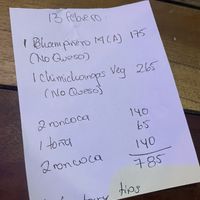 13 febrero
1 Champiñero M(A) 175
(No Queso)
1 Chimichanga Veg 265
(No Queso)
2 roncoca 140
1 toña 65
2 roncoca 140
785
tips